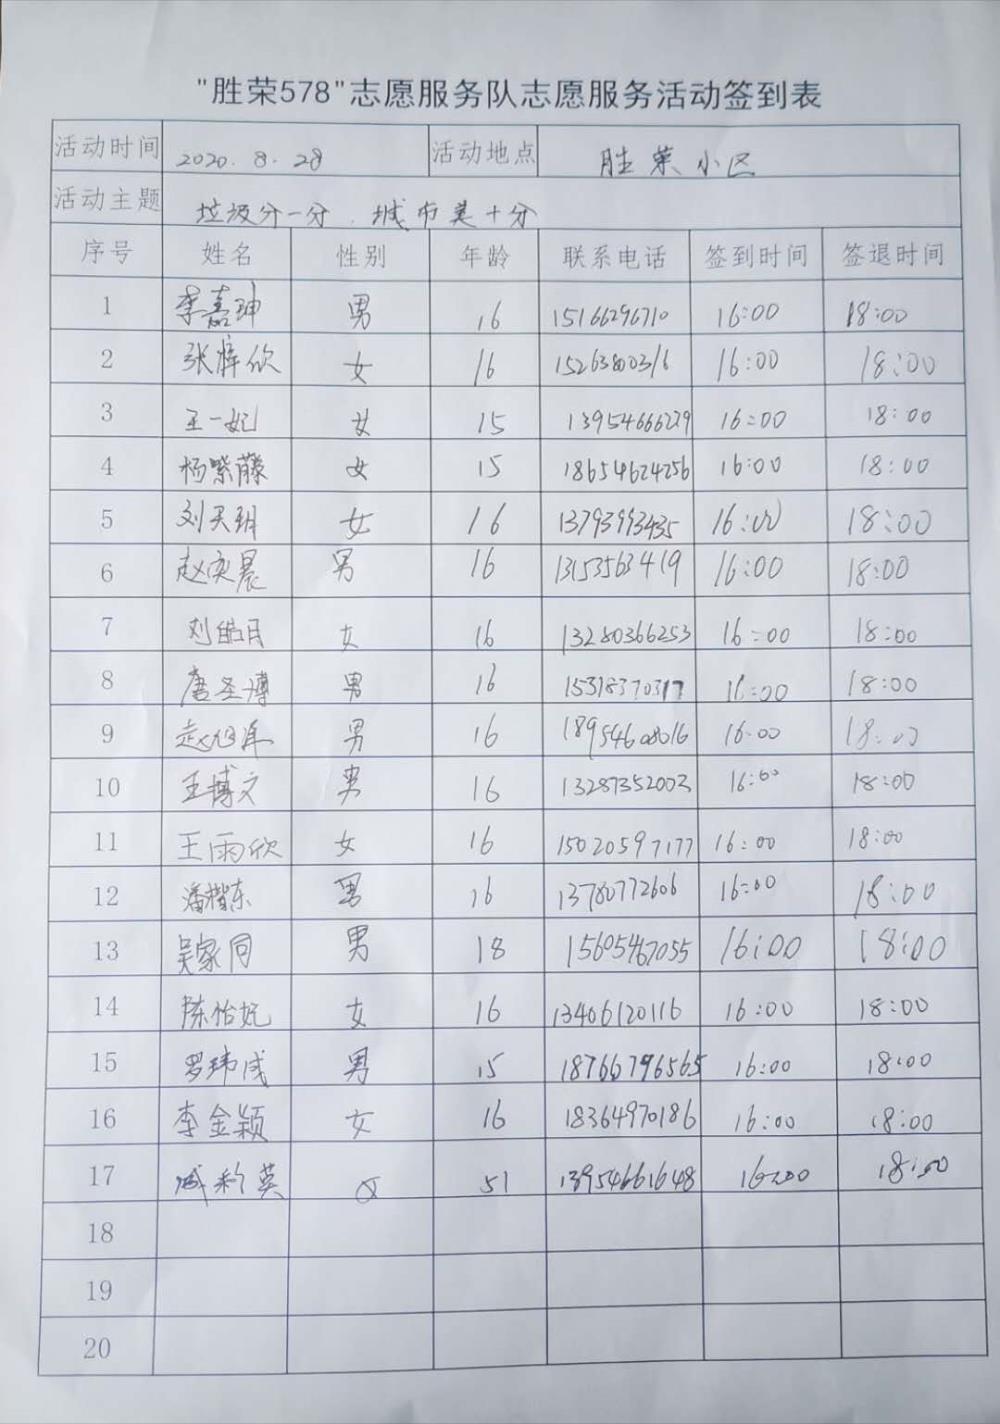 "胜荣578"志愿服务队志愿服务活动签到表
活动时间 2020.8.28 活动地点 胜荣小区
活动主题 垃圾分一分.城市美十分
序号 姓名 性别 年龄 联系电话 签到时间 签退时间
1 李嘉珅 男 16 15166296710 16:00 18:00
2 张梓欣 女 16 15263800316 16:00 18:00
3 王一妃 女 15 13954666229 16:00 18:00
4 杨紫藤 女 15 18654624256 16:00 18:00
5 刘天玥 女 16 13793993435 16:00 18:00
6 赵奕晨 男 16 13153563419 16:00 18:00
7 女 16 13280366253 16:00 18:00
8 唐圣博 男 16 15318370317 16:00 18:00
9 男 16 18954608016 16:00 18:00
10 王博文 男 16 13287352003 16:00 18:00
11 王雨欣 女 16 15020597177 16:00 18:00
12 潘楷东 男 16 13780772606 16:00 18:00
13 吴家同 男 18 15605467055 16:00 18:00
14 陈怡妃 女 16 13406120116 16:00 18:00
15 罗玮成 男 15 18766796565 16:00 18:00
16 李金颖 女 16 18364970186 16:00 18:00
17 女 51 13954661648 16:00 18:00
18
19
20